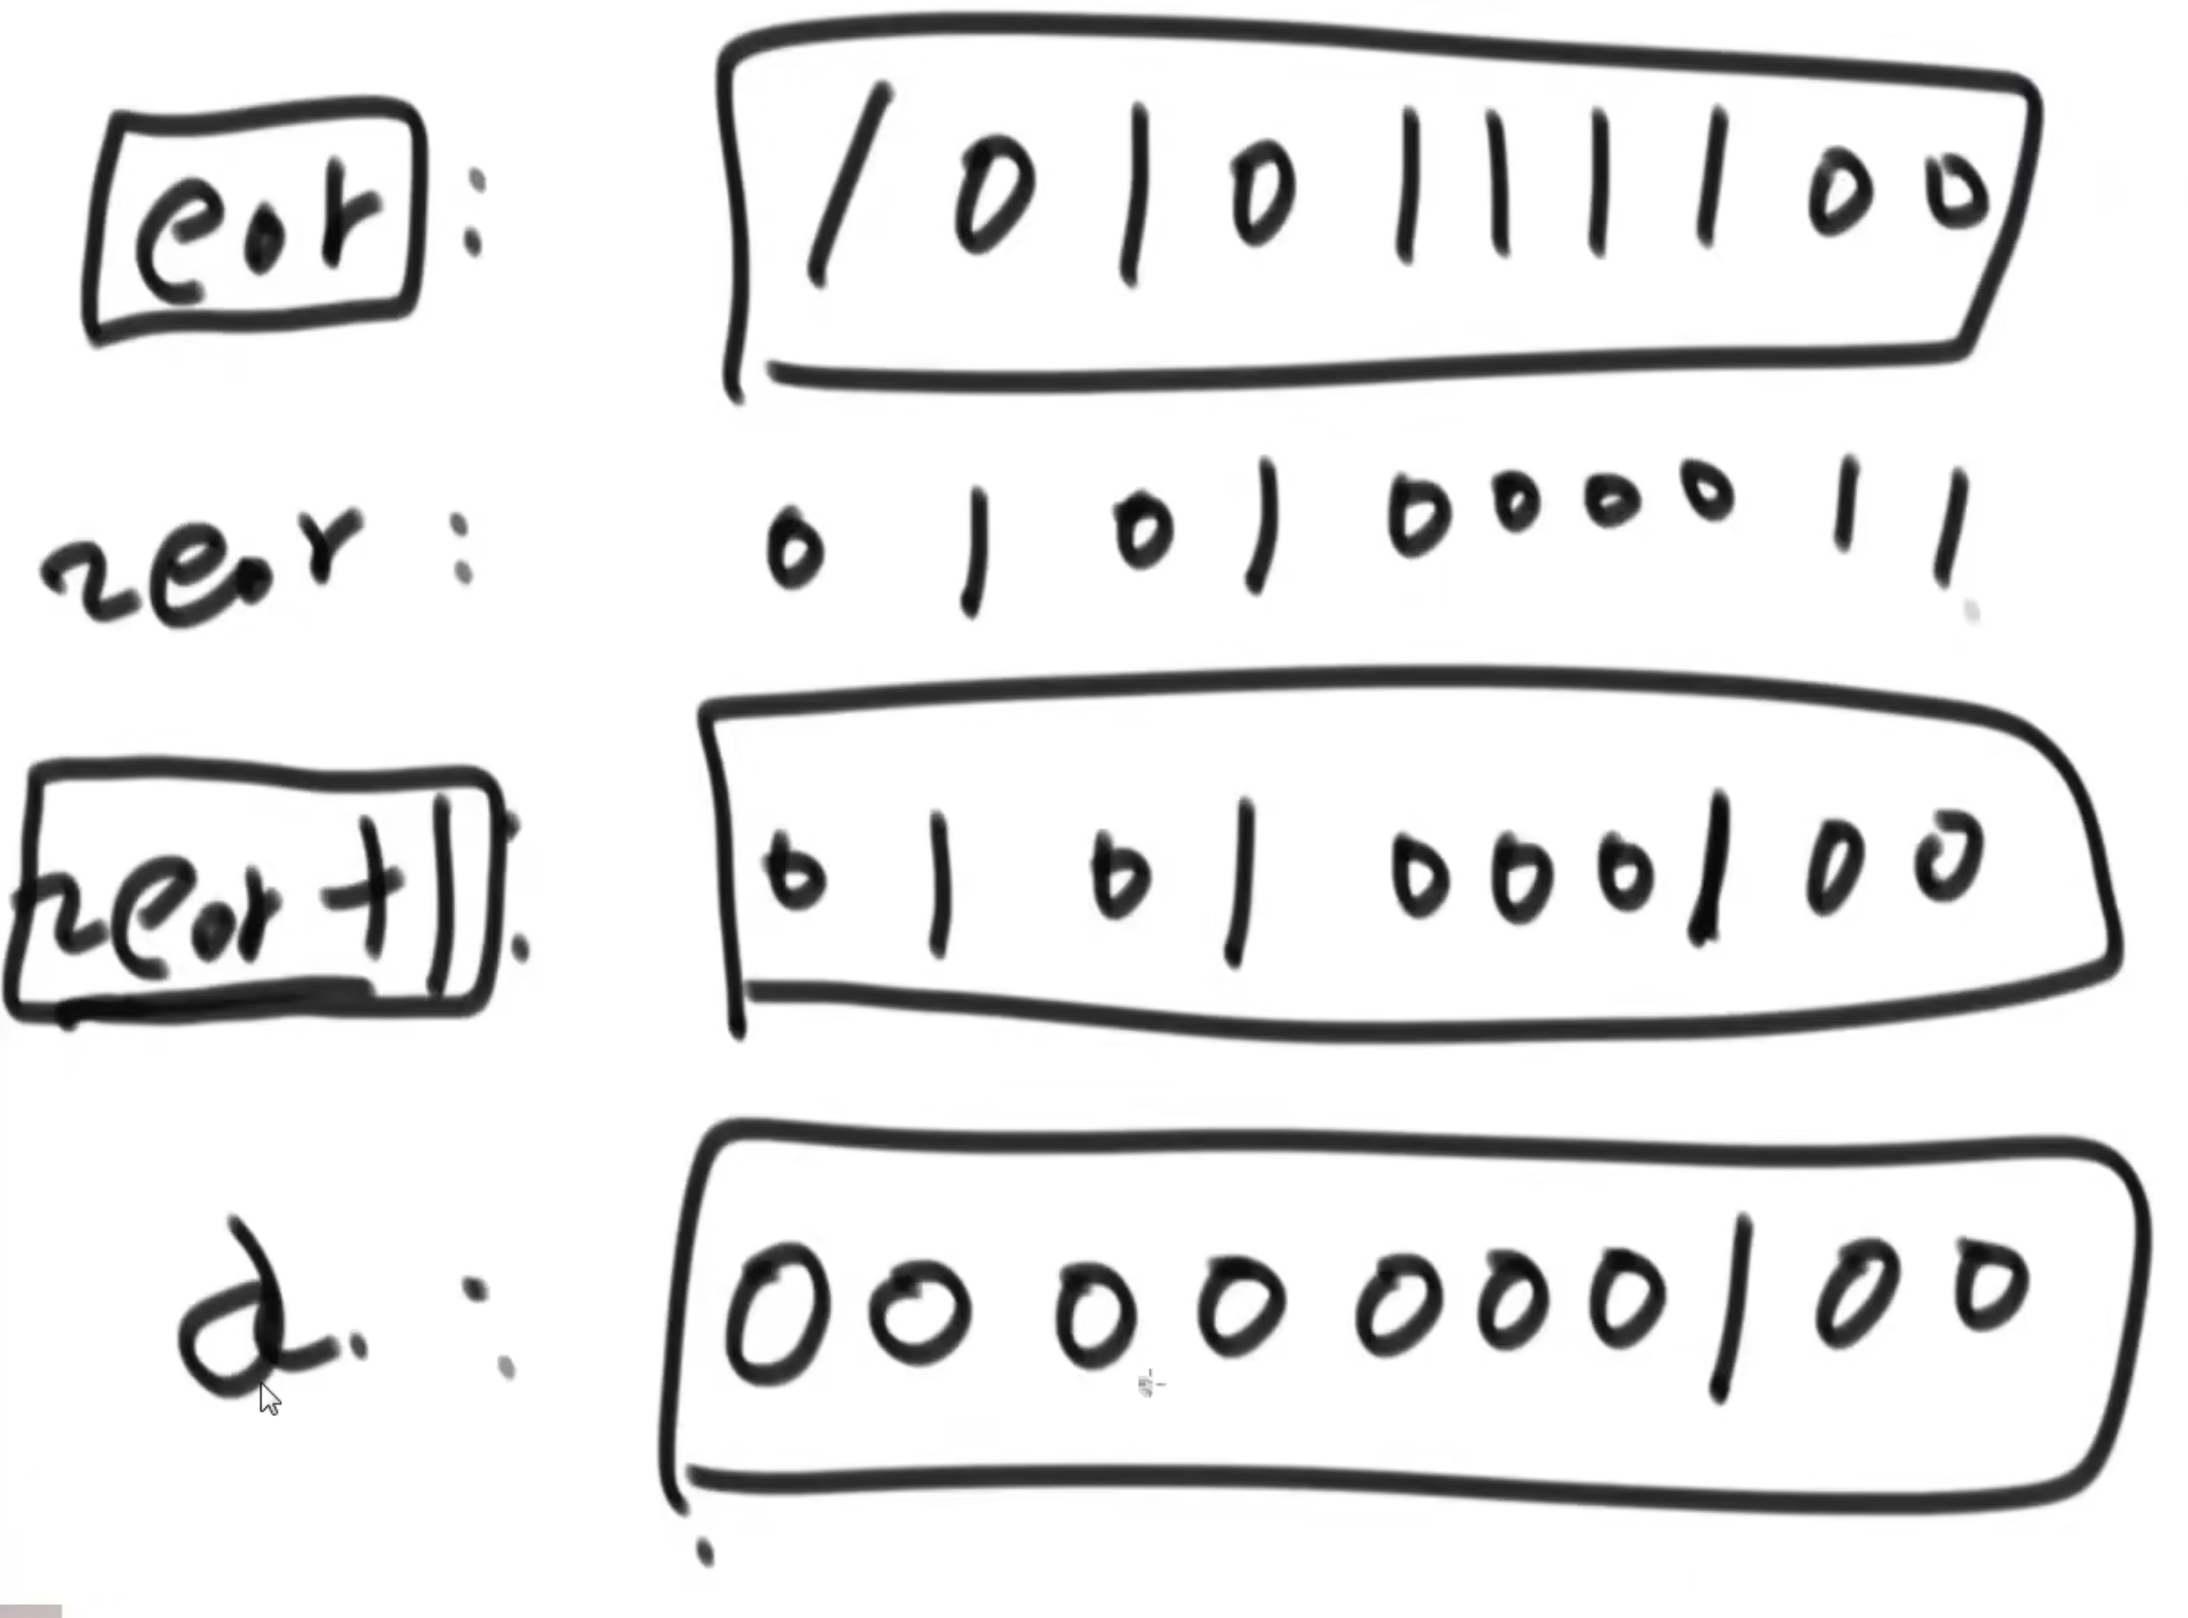 eor: 1010111100
~eor: 0101000011
~eor+1: 0101000100
a: 0000000100